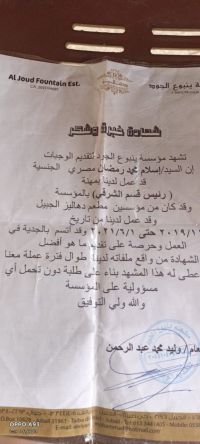 Al Joud Fountain Est.
سة ينبوع الجود
شهادة خبرة وشكر
تشهد مؤسسة ينبوع الجود لتقديم الوجبات
إن السيد/إسلام محمد رمضان مصري الجنسية
قد عمل لدينا بمهنة
( رئيس قسم الشرقي ) بالمؤسسة
وقد كان من مؤسسين مطعم دهاليز الجبيل
وقد عمل لدينا من تاريخ
٢٠١٩/١ حتى ٢٠٢١/٦/١ وقد اتسم بالجدية في
العمل وحرصة على تقديم ما هو أفضل
الشهادة من واقع ملفاته لدينا طوال فترة عملة معنا
عطى له هذا المشهد بناء على طلبة دون تحمل أي
مسؤولية على المؤسسة
والله ولي التوفيق
عام / وليد محمد عبد الرحمن
OPPO A91